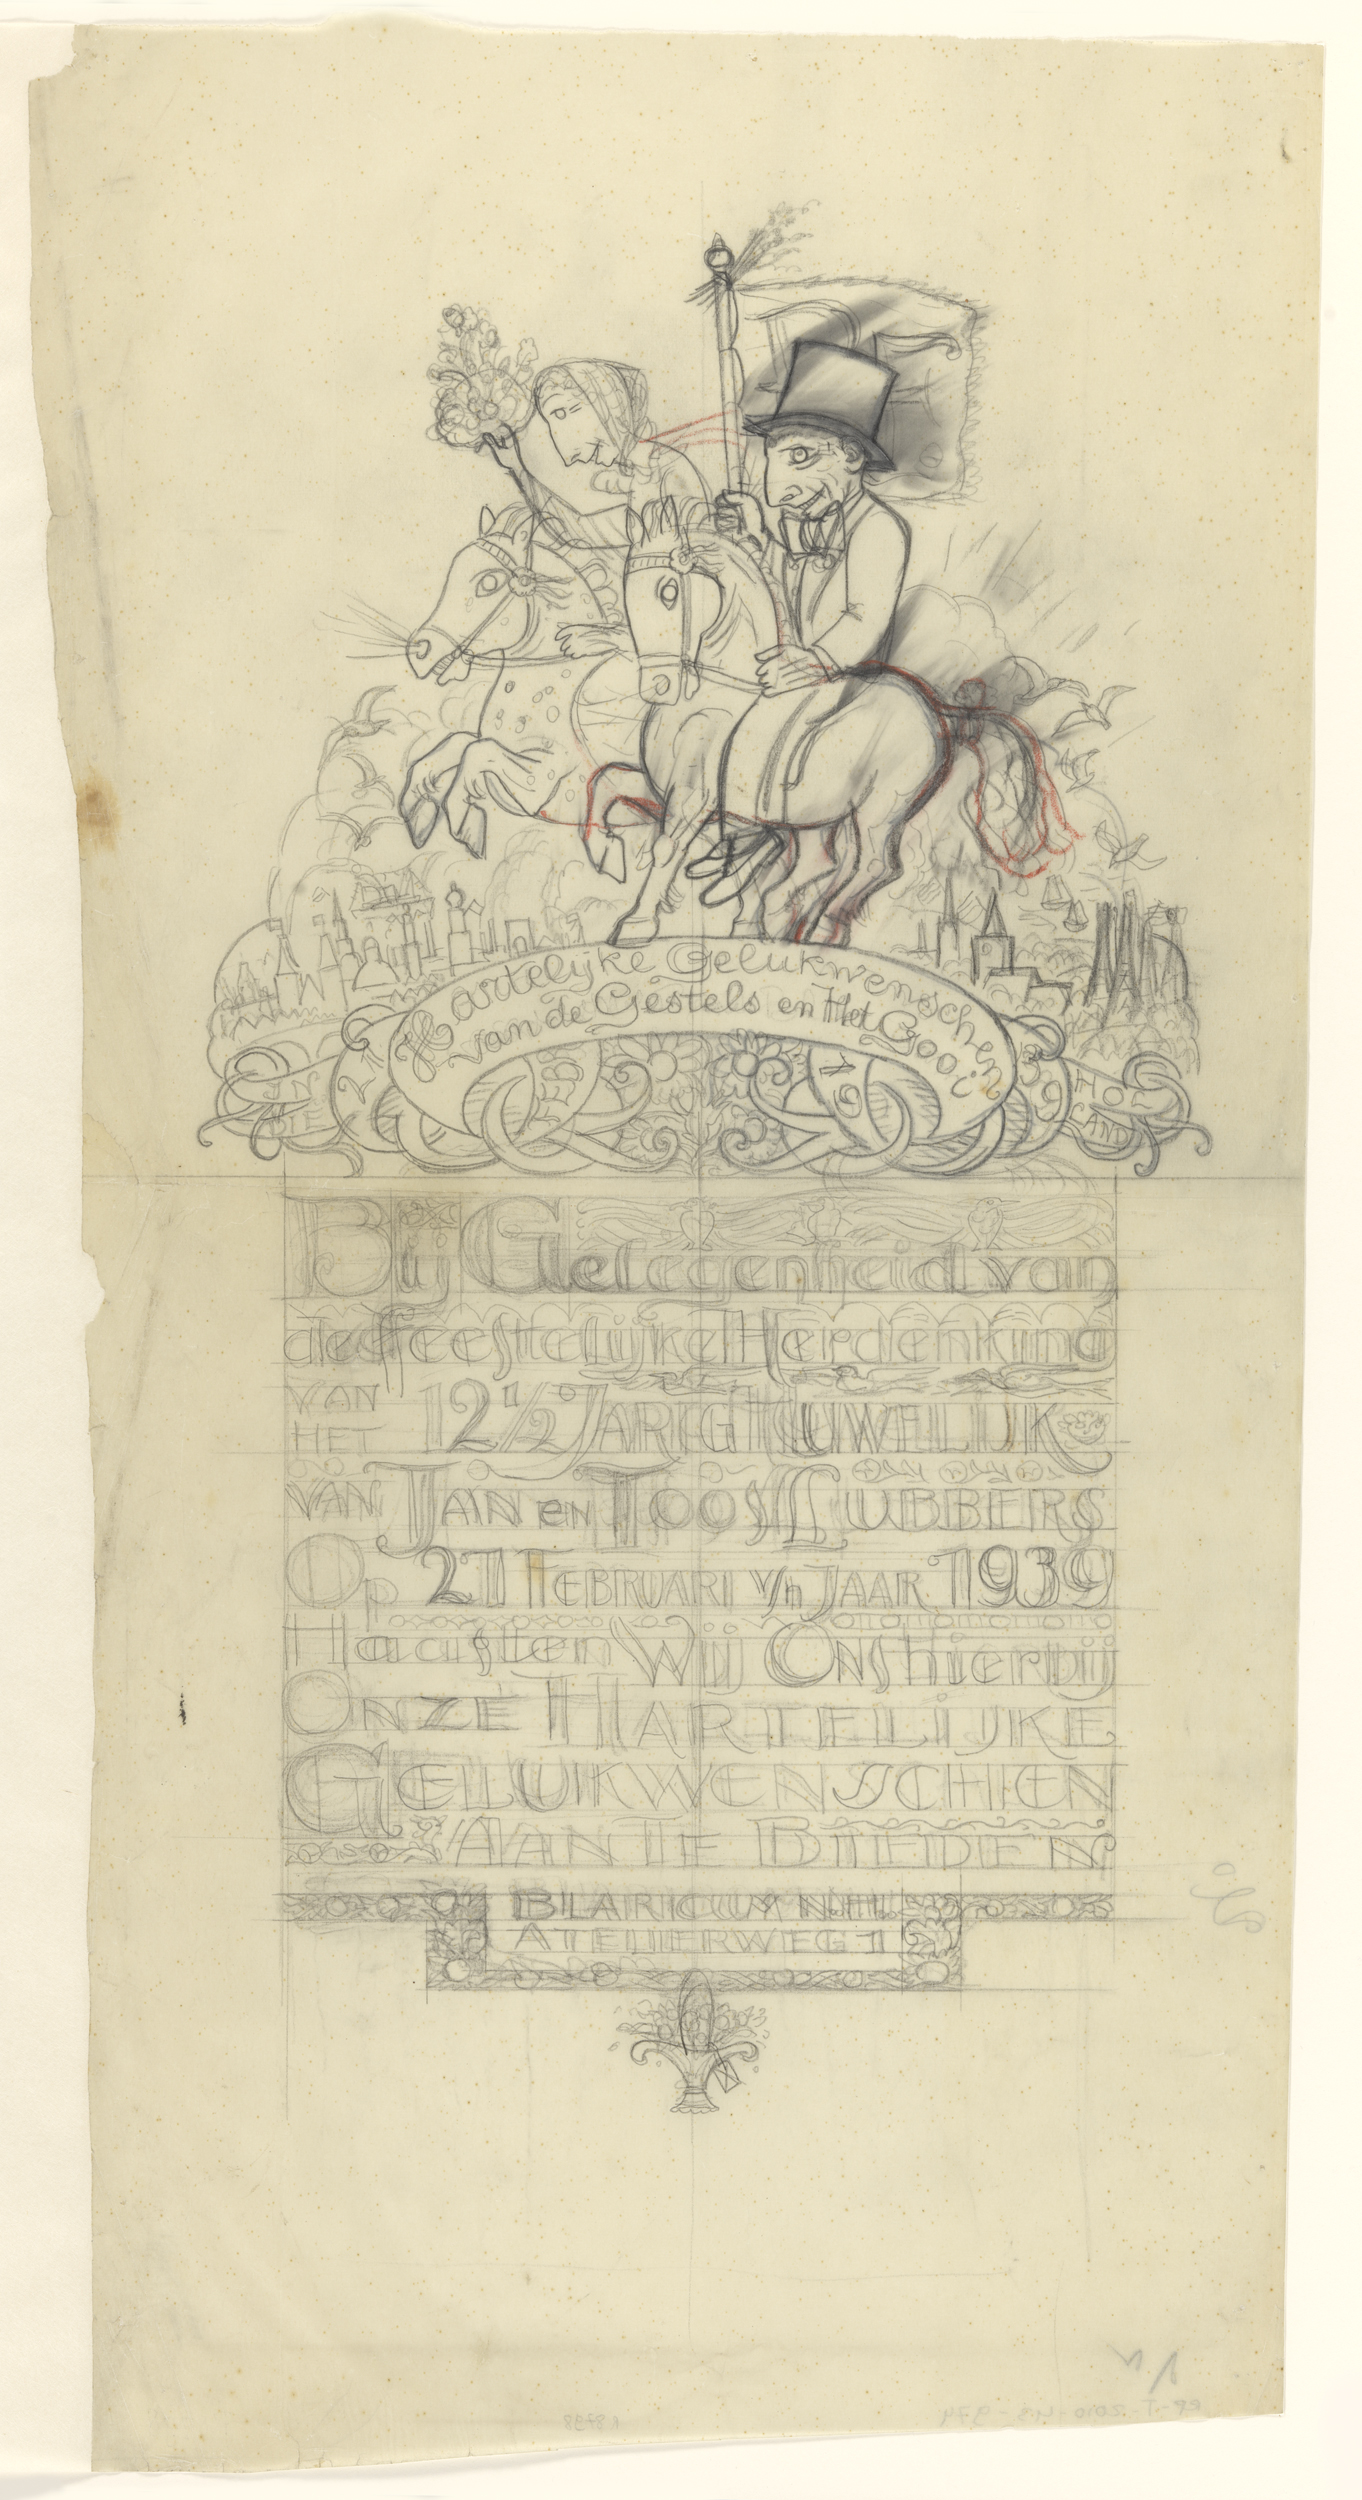 Hartelijke Gelukwenschen
van de Gestels en Het Gooi
IN
21
FEB
19
39
HOL
LAND
Bij Gelegenheid van
de Feestelijke Herdenking
VAN HET 12½ JARIG HUWELIJK
VAN JAN en TOOS LUBBERS
Op 21 FEBRUARI v/h JAAR 1939
Haasten Wij Ons hierbij
ONZE HARTELIJKE
GELUKWENSCHEN
AAN TE BIEDEN
BLARICUM N.H.
ATELIERWEG 1
RP-T-2010-43-974